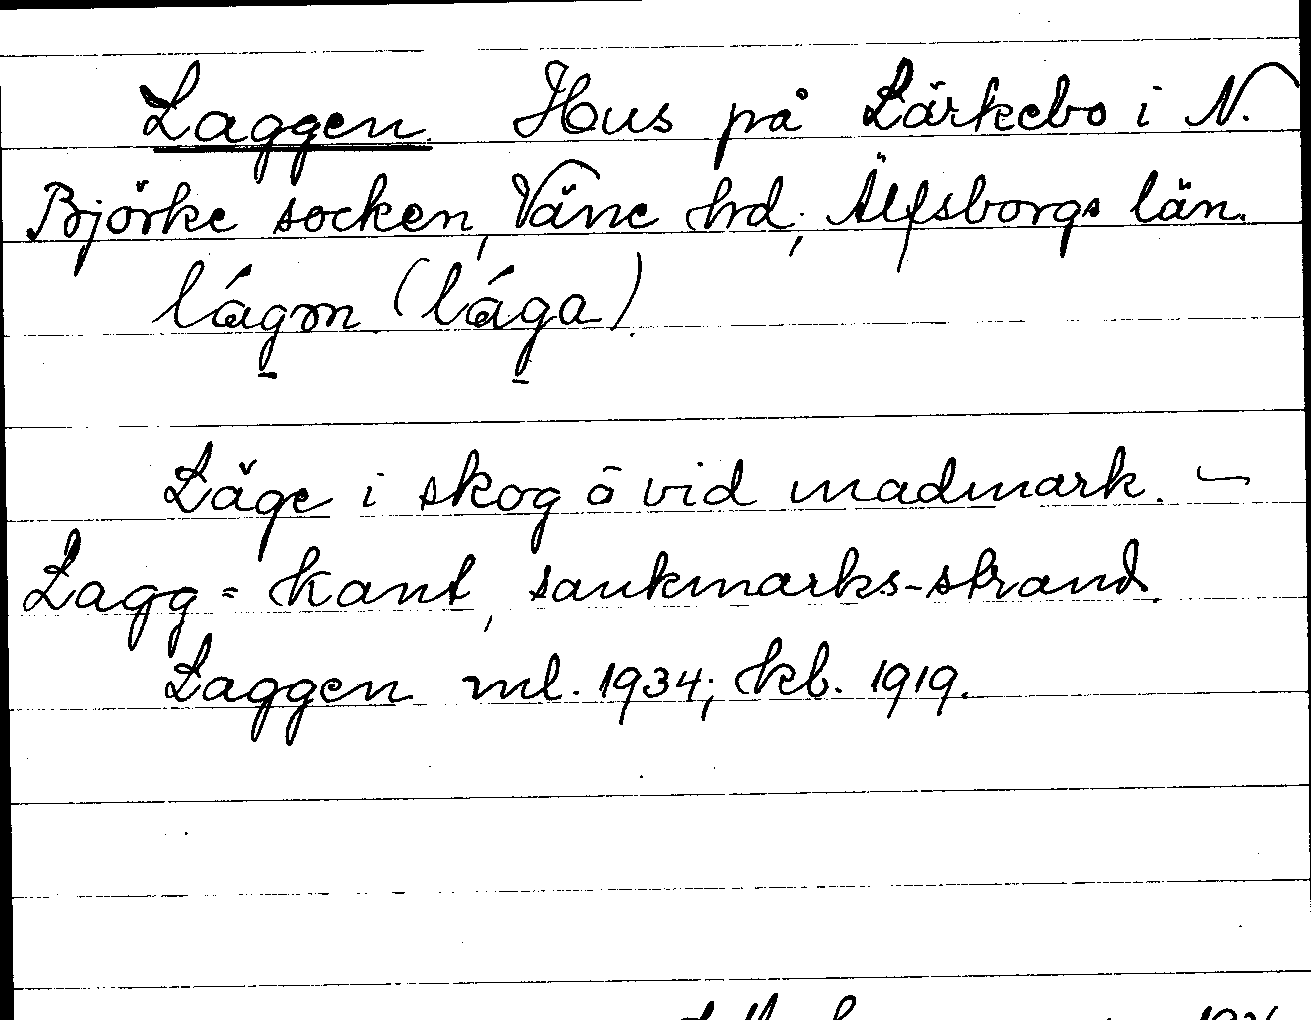 Laggen. Hus på Lärkebo i N.
Björke socken, Väne hd; Älfsborgs län.
lágm (lága).
Läge i skog ö vid madmark. –
Lagg = kant, sankmarks-strand.
Laggen ml. 1934; kb. 1919.